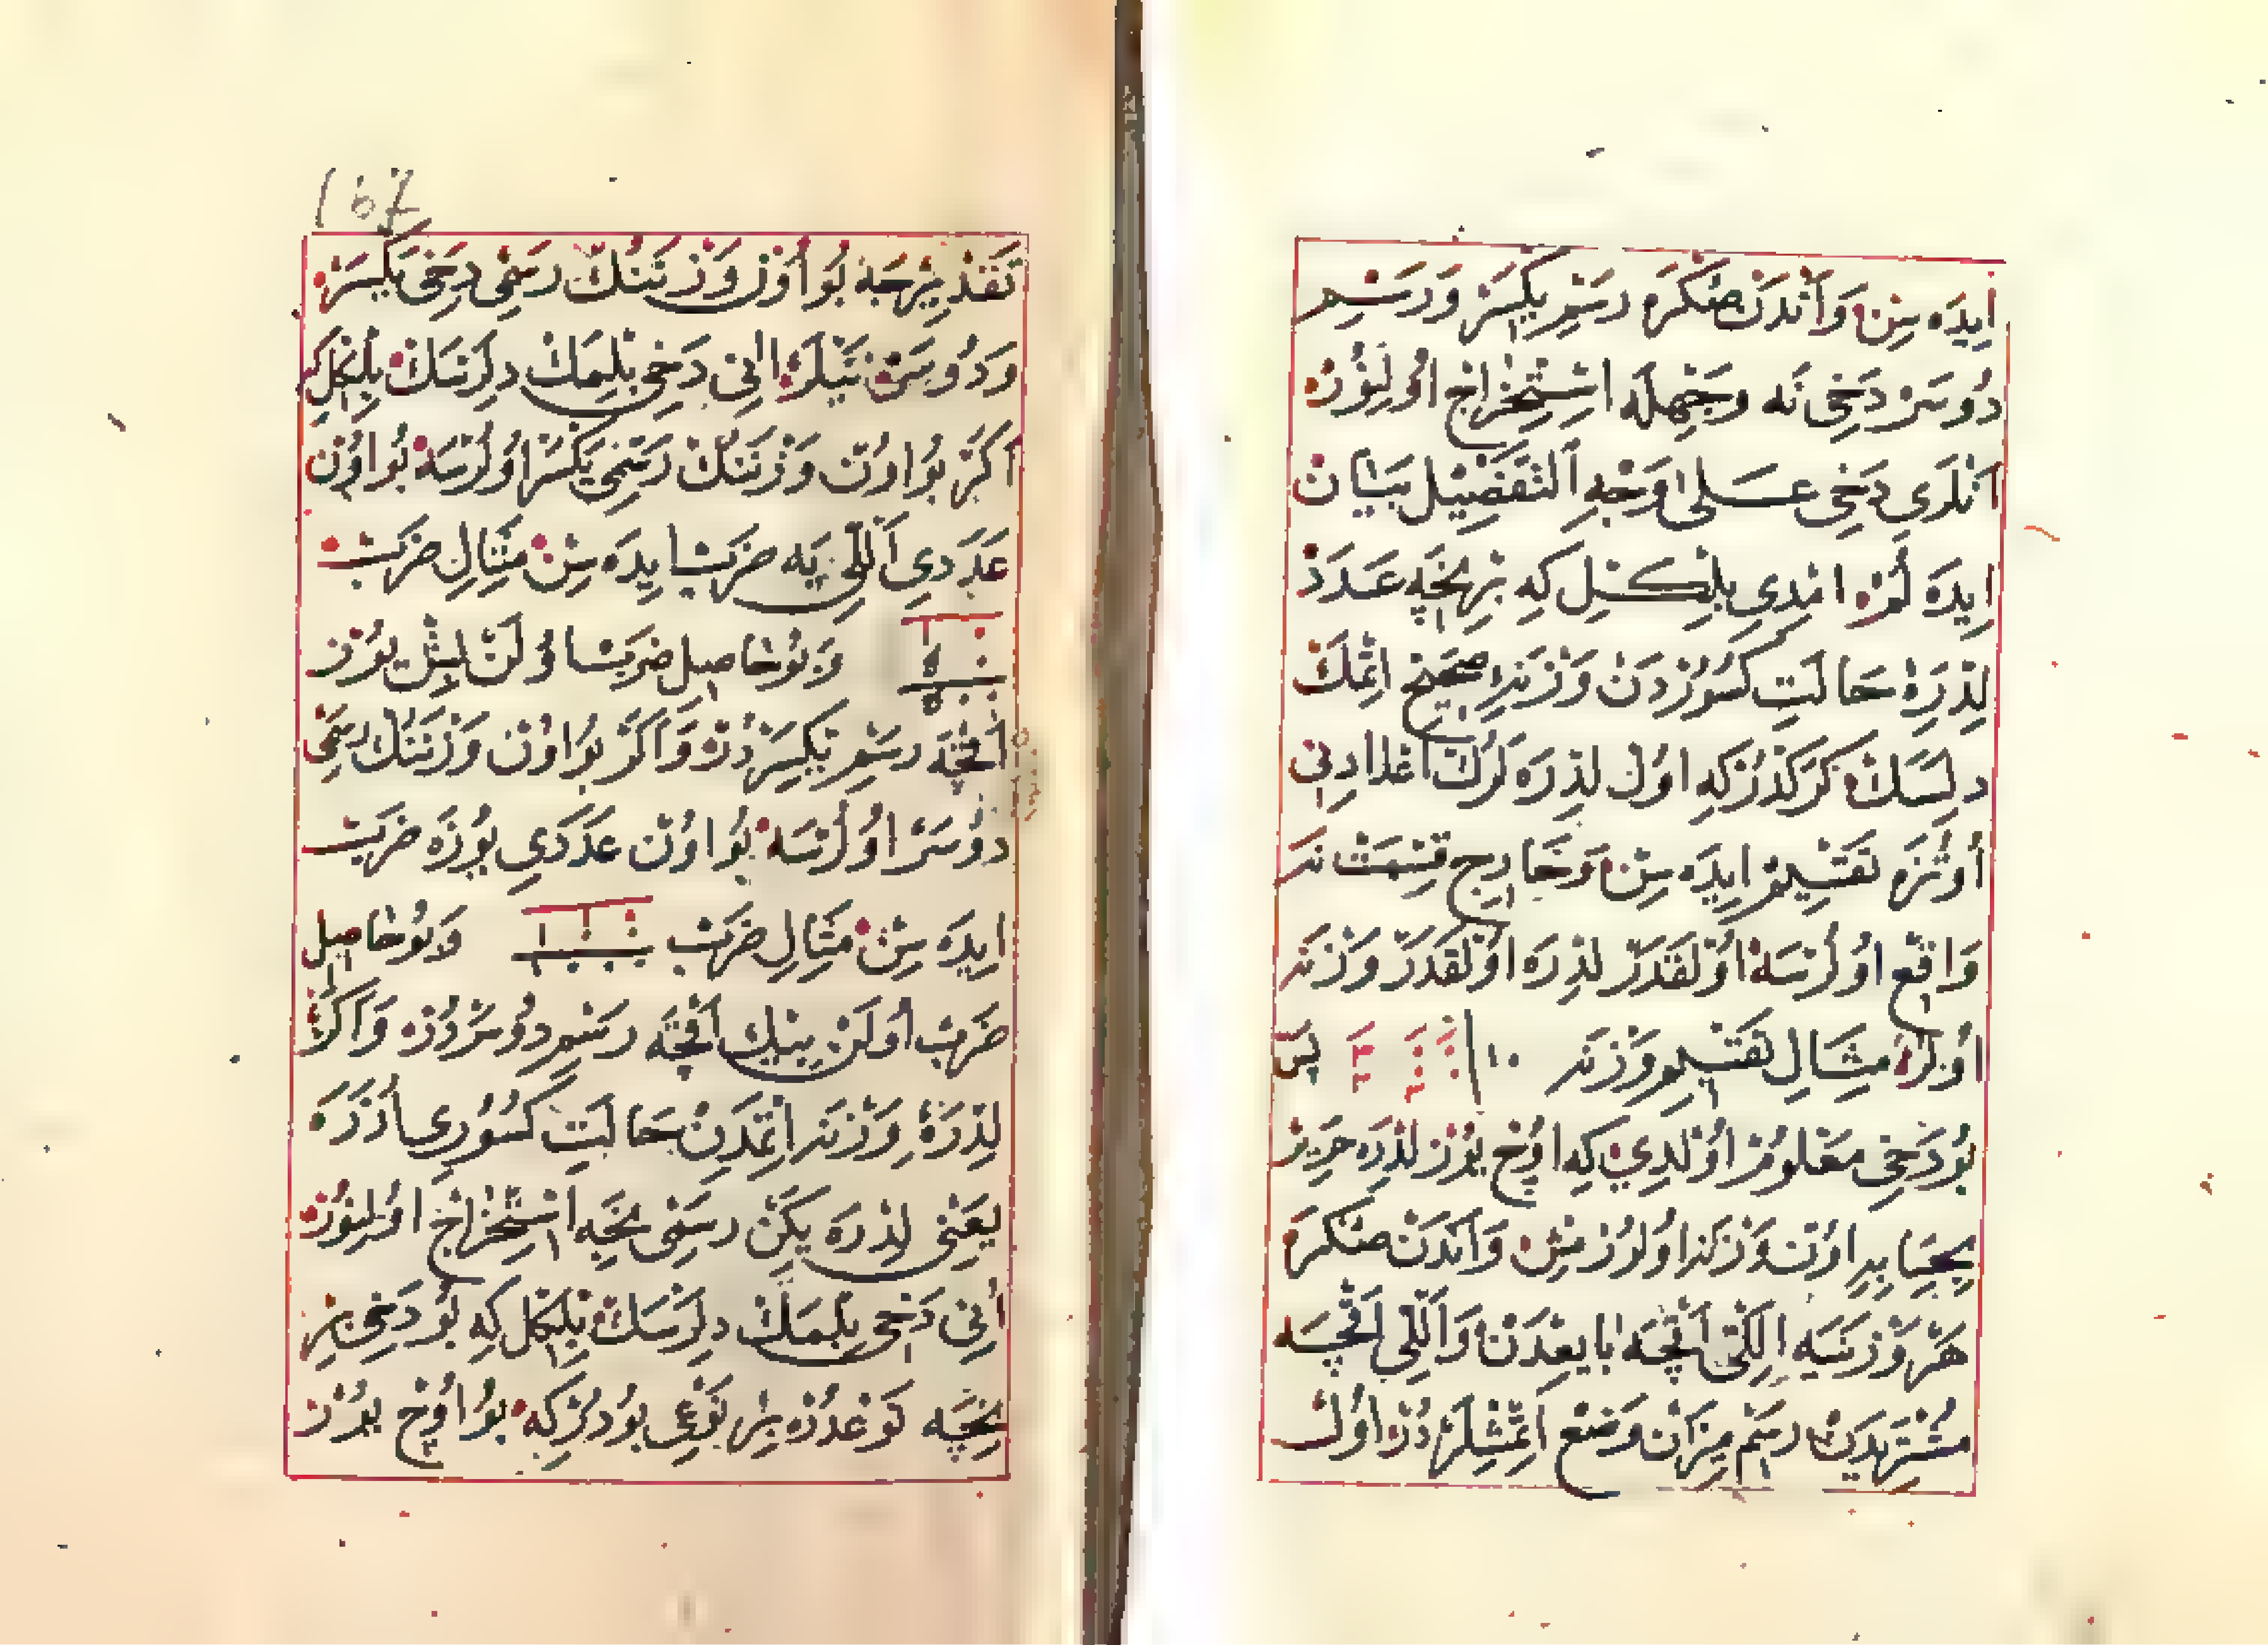 ایده سن واندن صکره رسم یکسر ورسم
دوسر دخی نه وجهله استخراج اولنور
انلری دخی علی وجه التفصیل بیان
ایده لم امدی بلکل که بر نیجه عدد
لذره حالت کسوردن وزنه صحیح اتمك
دلسك کرکدر که اول لذره لرك اعدادنی
اوتزه تقسیم ایده سن وخارج قسمت نه
واقع اولرسه اولقدر لذره اولقدر وزنه
اولر مثال تقسیم وزنه ١٠ پس
بو دخی معلوم اولدی که اوچ یوز لذره حریر
بحساب اون وزنه اولورمش واندن صکره
هر وزنه یه اللی اقچه بایعدن واللی اقچه
مشتریدن رسم میزان وضع اتمشلردر اول
167
تقدیرجه بو اون وزنه نك رسمی دخی یکسر
ودوسر نیلر انی دخی بلمك دلرسك بلکل که
اکر بو اون وزنه نك رسمی یکسر اولرسه بو اون
عددی اللی یه ضرب ایده سن مثال ضرب
وبو حاصل ضرب اولن بش یوز
اقچه رسم یکسردر واکر بو اون وزنه نك رسمی
دوسر اولرسه بو اون عددی یوزه ضرب
ایده سن مثال ضرب وبو حاصل
ضرب اولن بیك اقچه رسم دوسردر واکر
لذره وزنه اتمدن حالت کسوری اوزره
یعنی لذره یکن رسمی نیجه استخراج اولنور
انی دخی بلمك دلرسك بلکل که بو دخی بر
نیجه نوعدر بر نوعی بودر که بو اوچ یوز